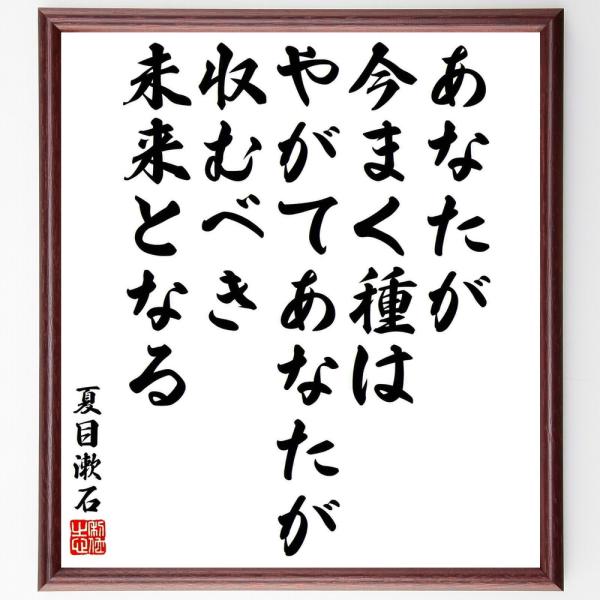 あなたが
今まく種は
やがてあなたが
収むべき
未来となる
夏目漱石